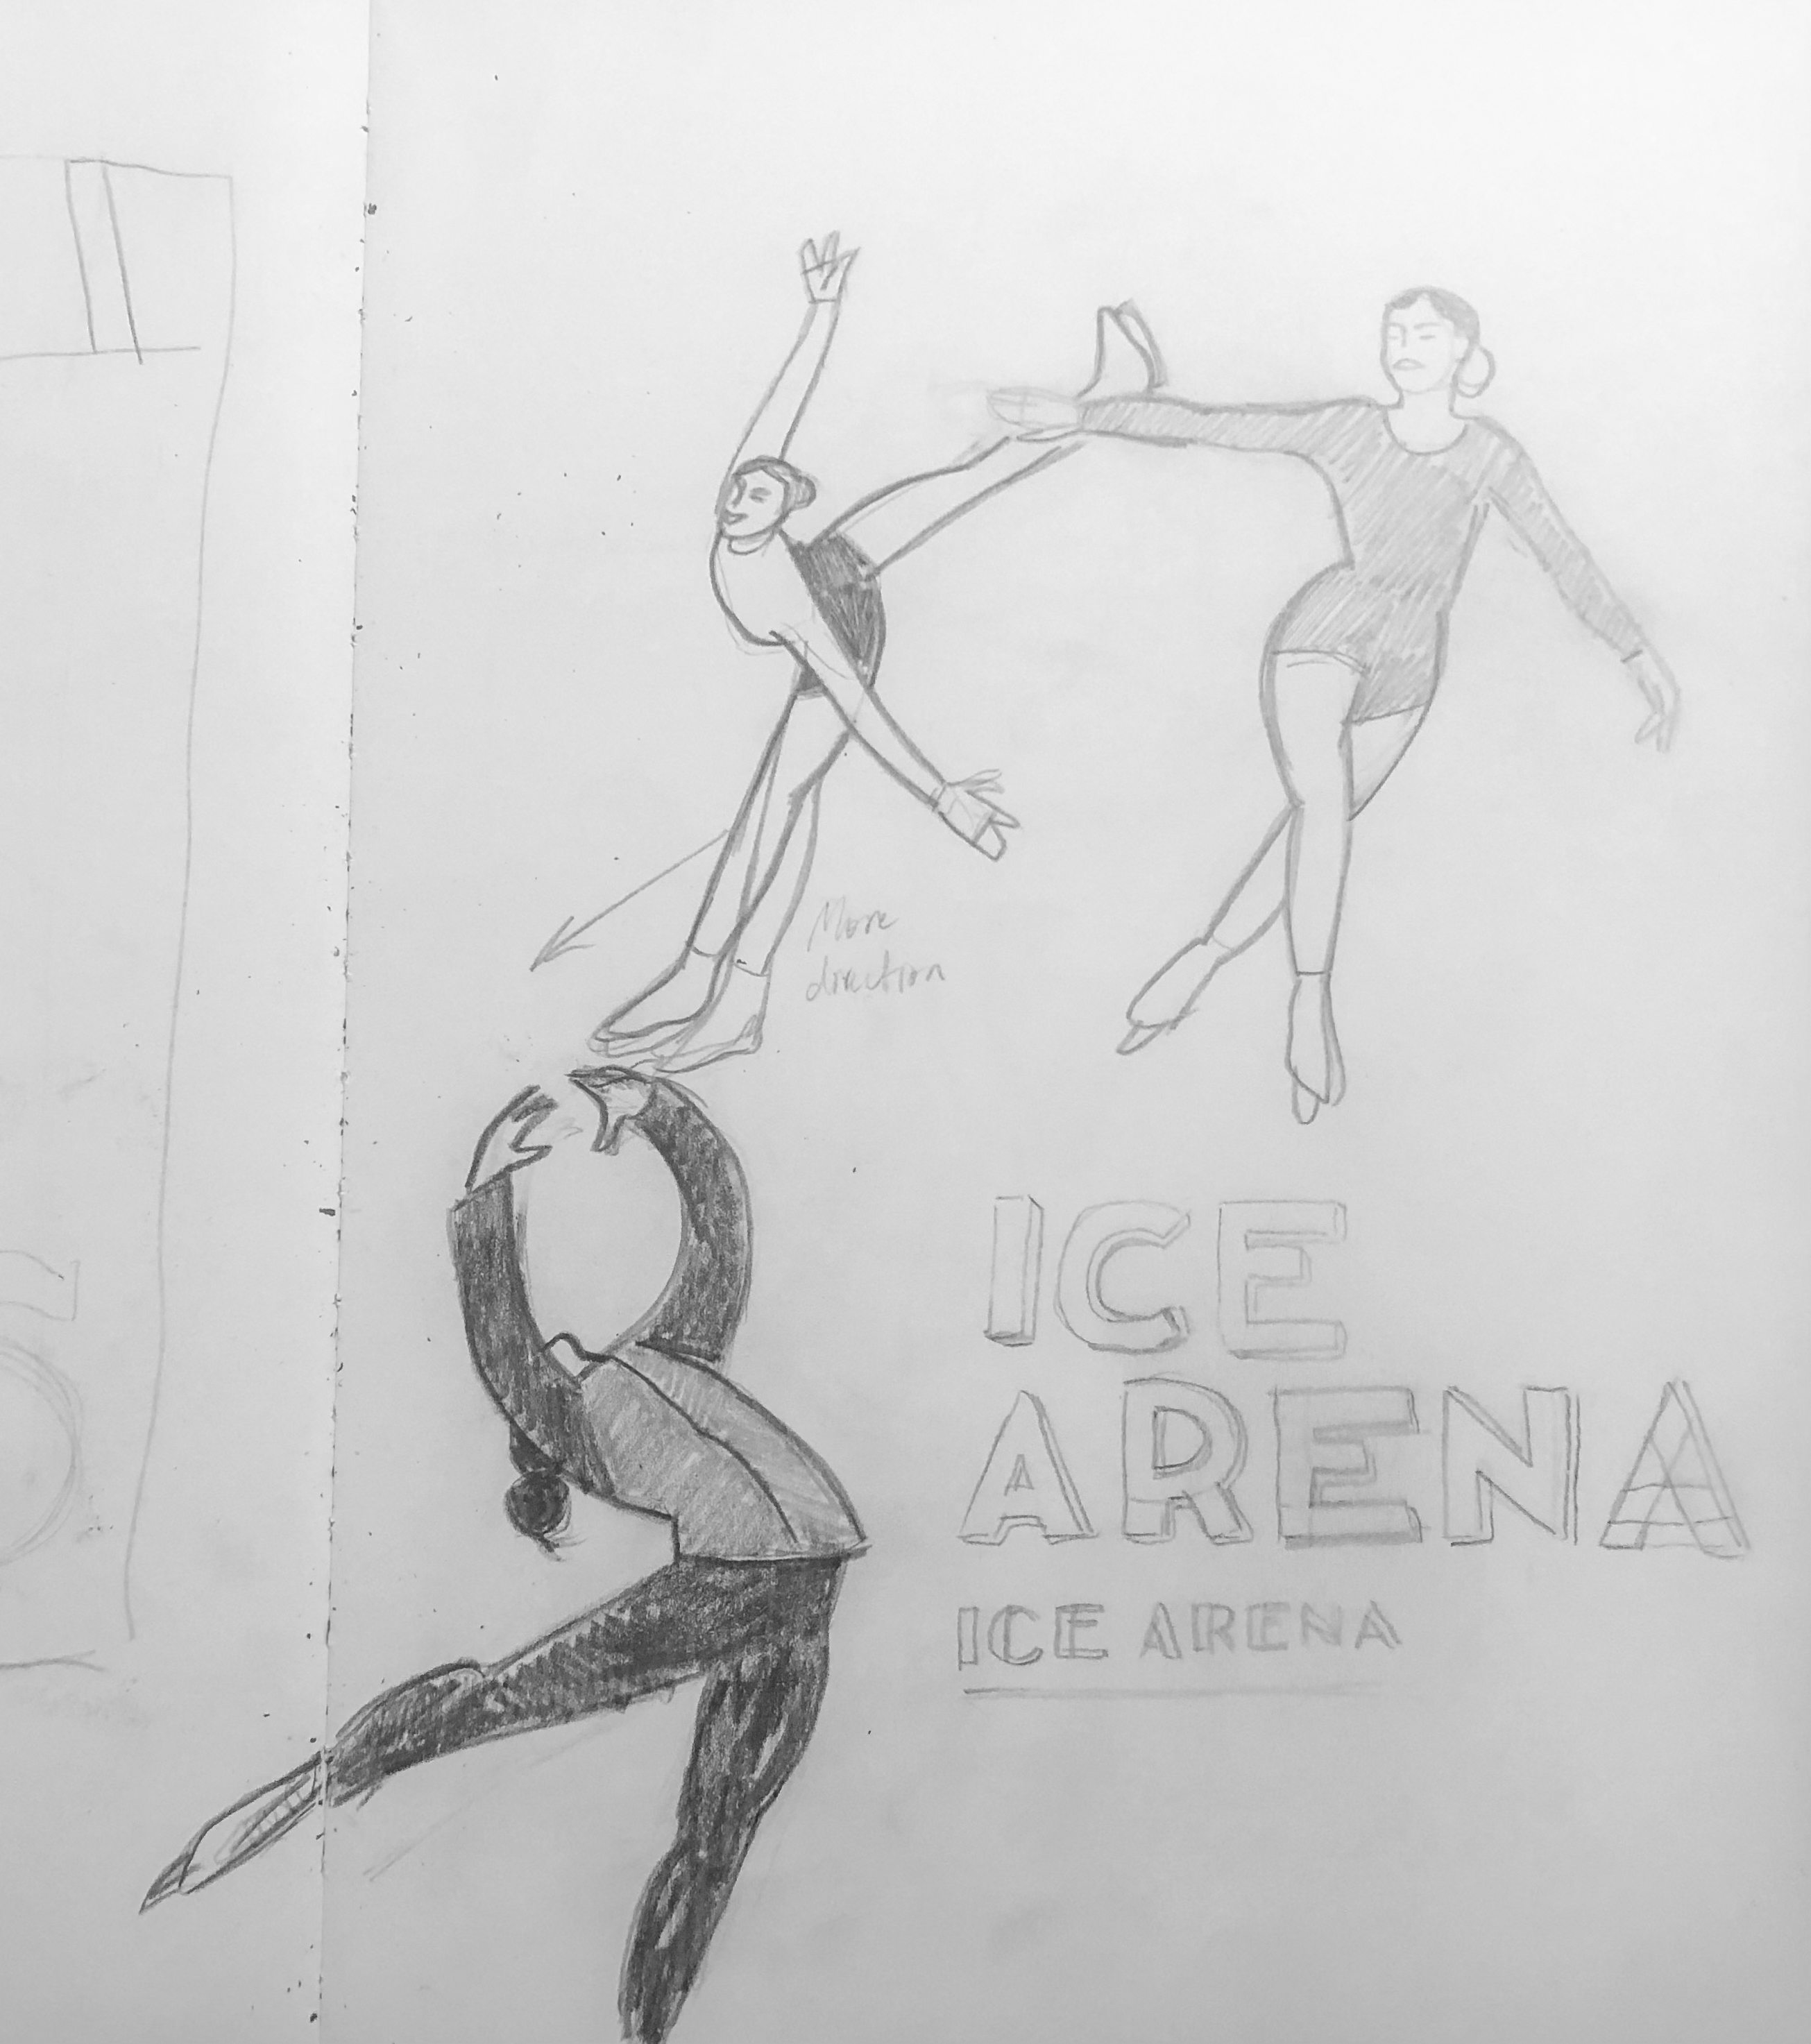 More
direction
ICE
ARENA
ICE ARENA